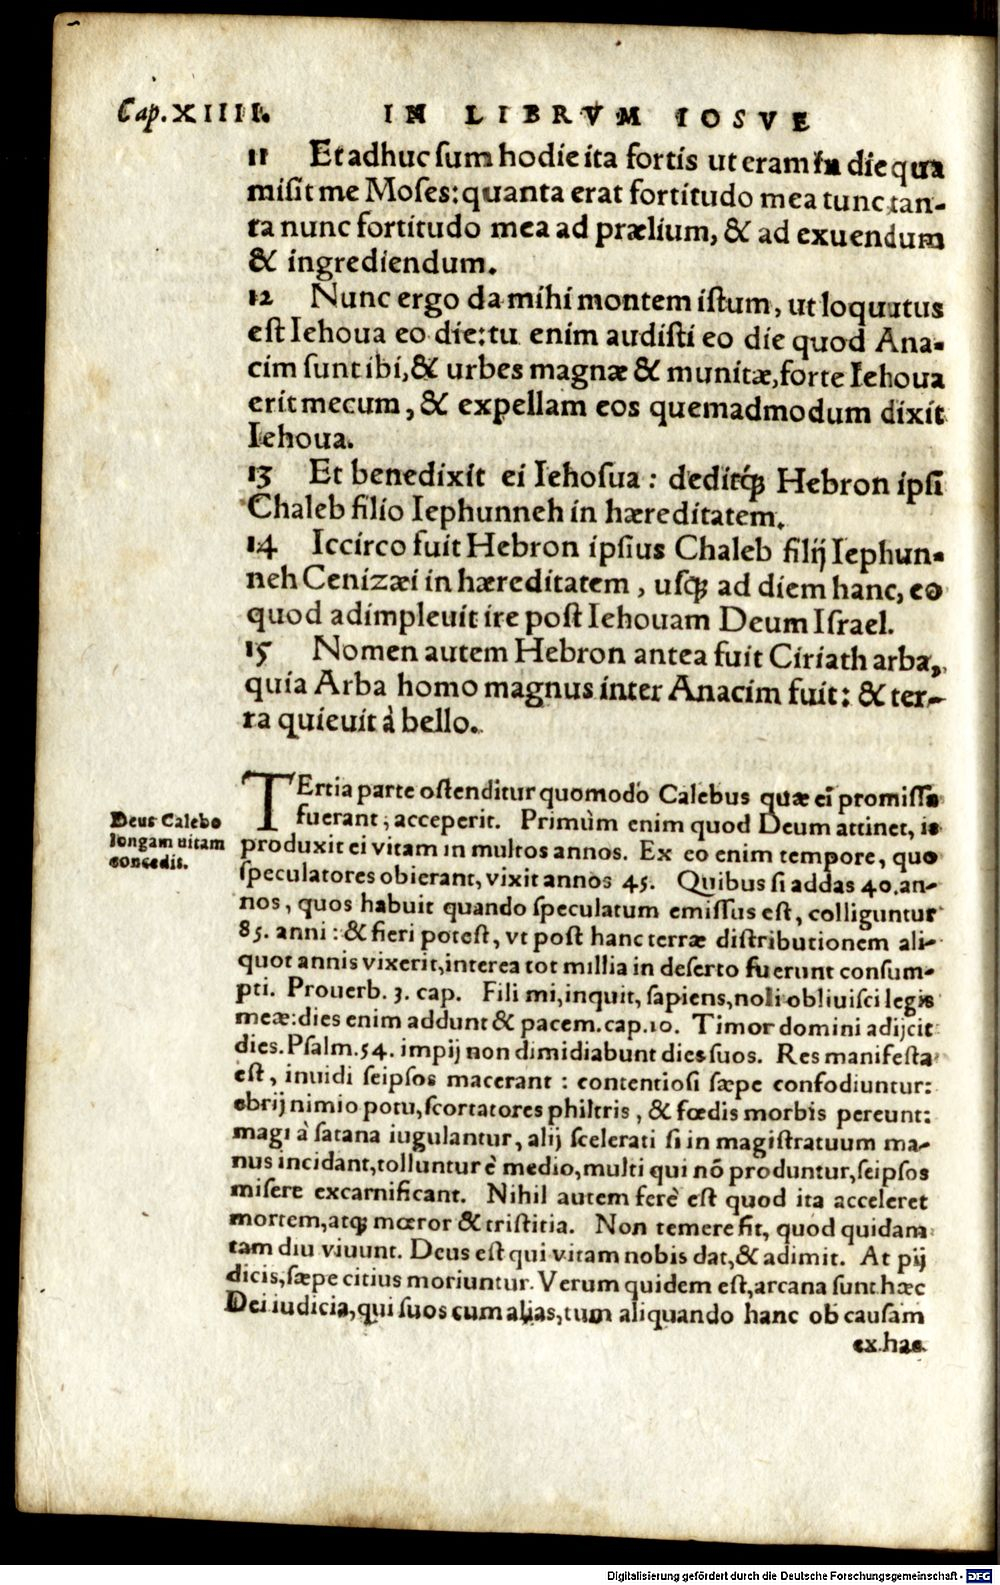 Cap. XIIII. IN LIBRVM IOSVE
11 Et adhuc sum hodie ita fortis ut eram in die qua
misit me Moses: quanta erat fortitudo mea tunc, tan-
ta nunc fortitudo mea ad prælium, & ad exuendum
& ingrediendum.
12 Nunc ergo da mihi montem istum, ut loquutus
est Iehoua eo die: tu enim audisti eo die quod Ana-
cim sunt ibi, & urbes magnæ & munitæ, forte Iehoua
erit mecum, & expellam eos quemadmodum dixit
Iehoua.
13 Et benedixit ei Iehosua: deditq́ꝫ Hebron ipsi
Chaleb filio Iephunneh in hæreditatem.
14 Iccirco fuit Hebron ipsius Chaleb filij Iephun-
neh Cenizæi in hæreditatem, usqꝫ ad diem hanc, eo
quod adimpleuit ire post Iehouam Deum Israel.
15 Nomen autem Hebron antea fuit Ciriath arba,
quia Arba homo magnus inter Anacim fuit: & ter-
ra quieuit à bello.
TErtia parte ostenditur quomodo Calebus quæ ei promissa
fuerant, acceperit. Primùm enim quod Deum attinet, is
Deus Calebo
longam uitam
concedit.
produxit ei vitam in multos annos. Ex eo enim tempore, quo
speculatores obierant, vixit annos 45. Quibus si addas 40. an-
nos, quos habuit quando speculatum emissus est, colliguntur
85. anni: & fieri potest, vt post hanc terræ distributionem ali-
quot annis vixerit, interea tot millia in deserto fuerunt consum-
pti. Prouerb. 3. cap. Fili mi, inquit, sapiens, noli obliuisci legis
meæ: dies enim addunt & pacem. cap. 10. Timor domini adijcit
dies. Psalm. 54. impij non dimidiabunt dies suos. Res manifesta
est, inuidi seipsos macerant: contentiosi sæpe confodiuntur:
ebrij nimio potu, scortatores philtris, & fœdis morbis pereunt:
magi à satana iugulantur, alij scelerati si in magistratuum ma-
nus incidant, tolluntur è medio, multi qui nō produntur, seipsos
misere excarnificant. Nihil autem ferè est quod ita acceleret
mortem, atqꝫ mœror & tristitia. Non temere fit, quod quidam
tam diu viuunt. Deus est qui vitam nobis dat, & adimit. At pij
dicis, sæpe citius moriuntur. Verum quidem est, arcana sunt hæc
Dei iudicia, qui suos cum alias, tum aliquando hanc ob causam
ex hac
Digitalisierung gefördert durch die Deutsche Forschungsgemeinschaft - DFG